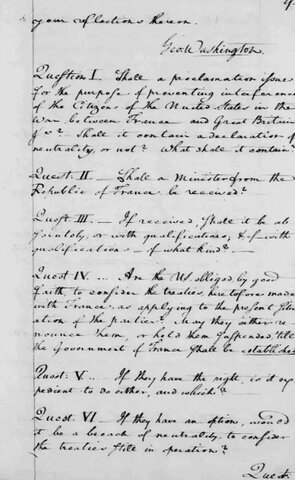 your reflections thereon.
Geo. Washington.
Question I. Shall a proclamation issue
for the purpose of preventing interferences
of the Citizens of the United States in the
War between France and Great Britain
&c? Shall it contain a declaration of
neutrality, or not? What shall it contain?
Quest. II — Shall a Minister from the
Republic of France be received?
Quest. III — If received, shall it be ab
solutely, or with qualifications, & if with
qualifications — of what kind?
Quest IV ... Are the US. obliged by good
faith, to consider the treaties heretofore made
with France, as applying to the present situ
ation of the parties? May they either re
nounce them, or hold them suspended 'till
the Government of France shall be established
Quest. V ... If they have the right, is it ex
pedient to do either, and which?
Quest. VI — If they have an option, would
it be a breach of neutrality, to consider
the treaties still in operation?
Quest.